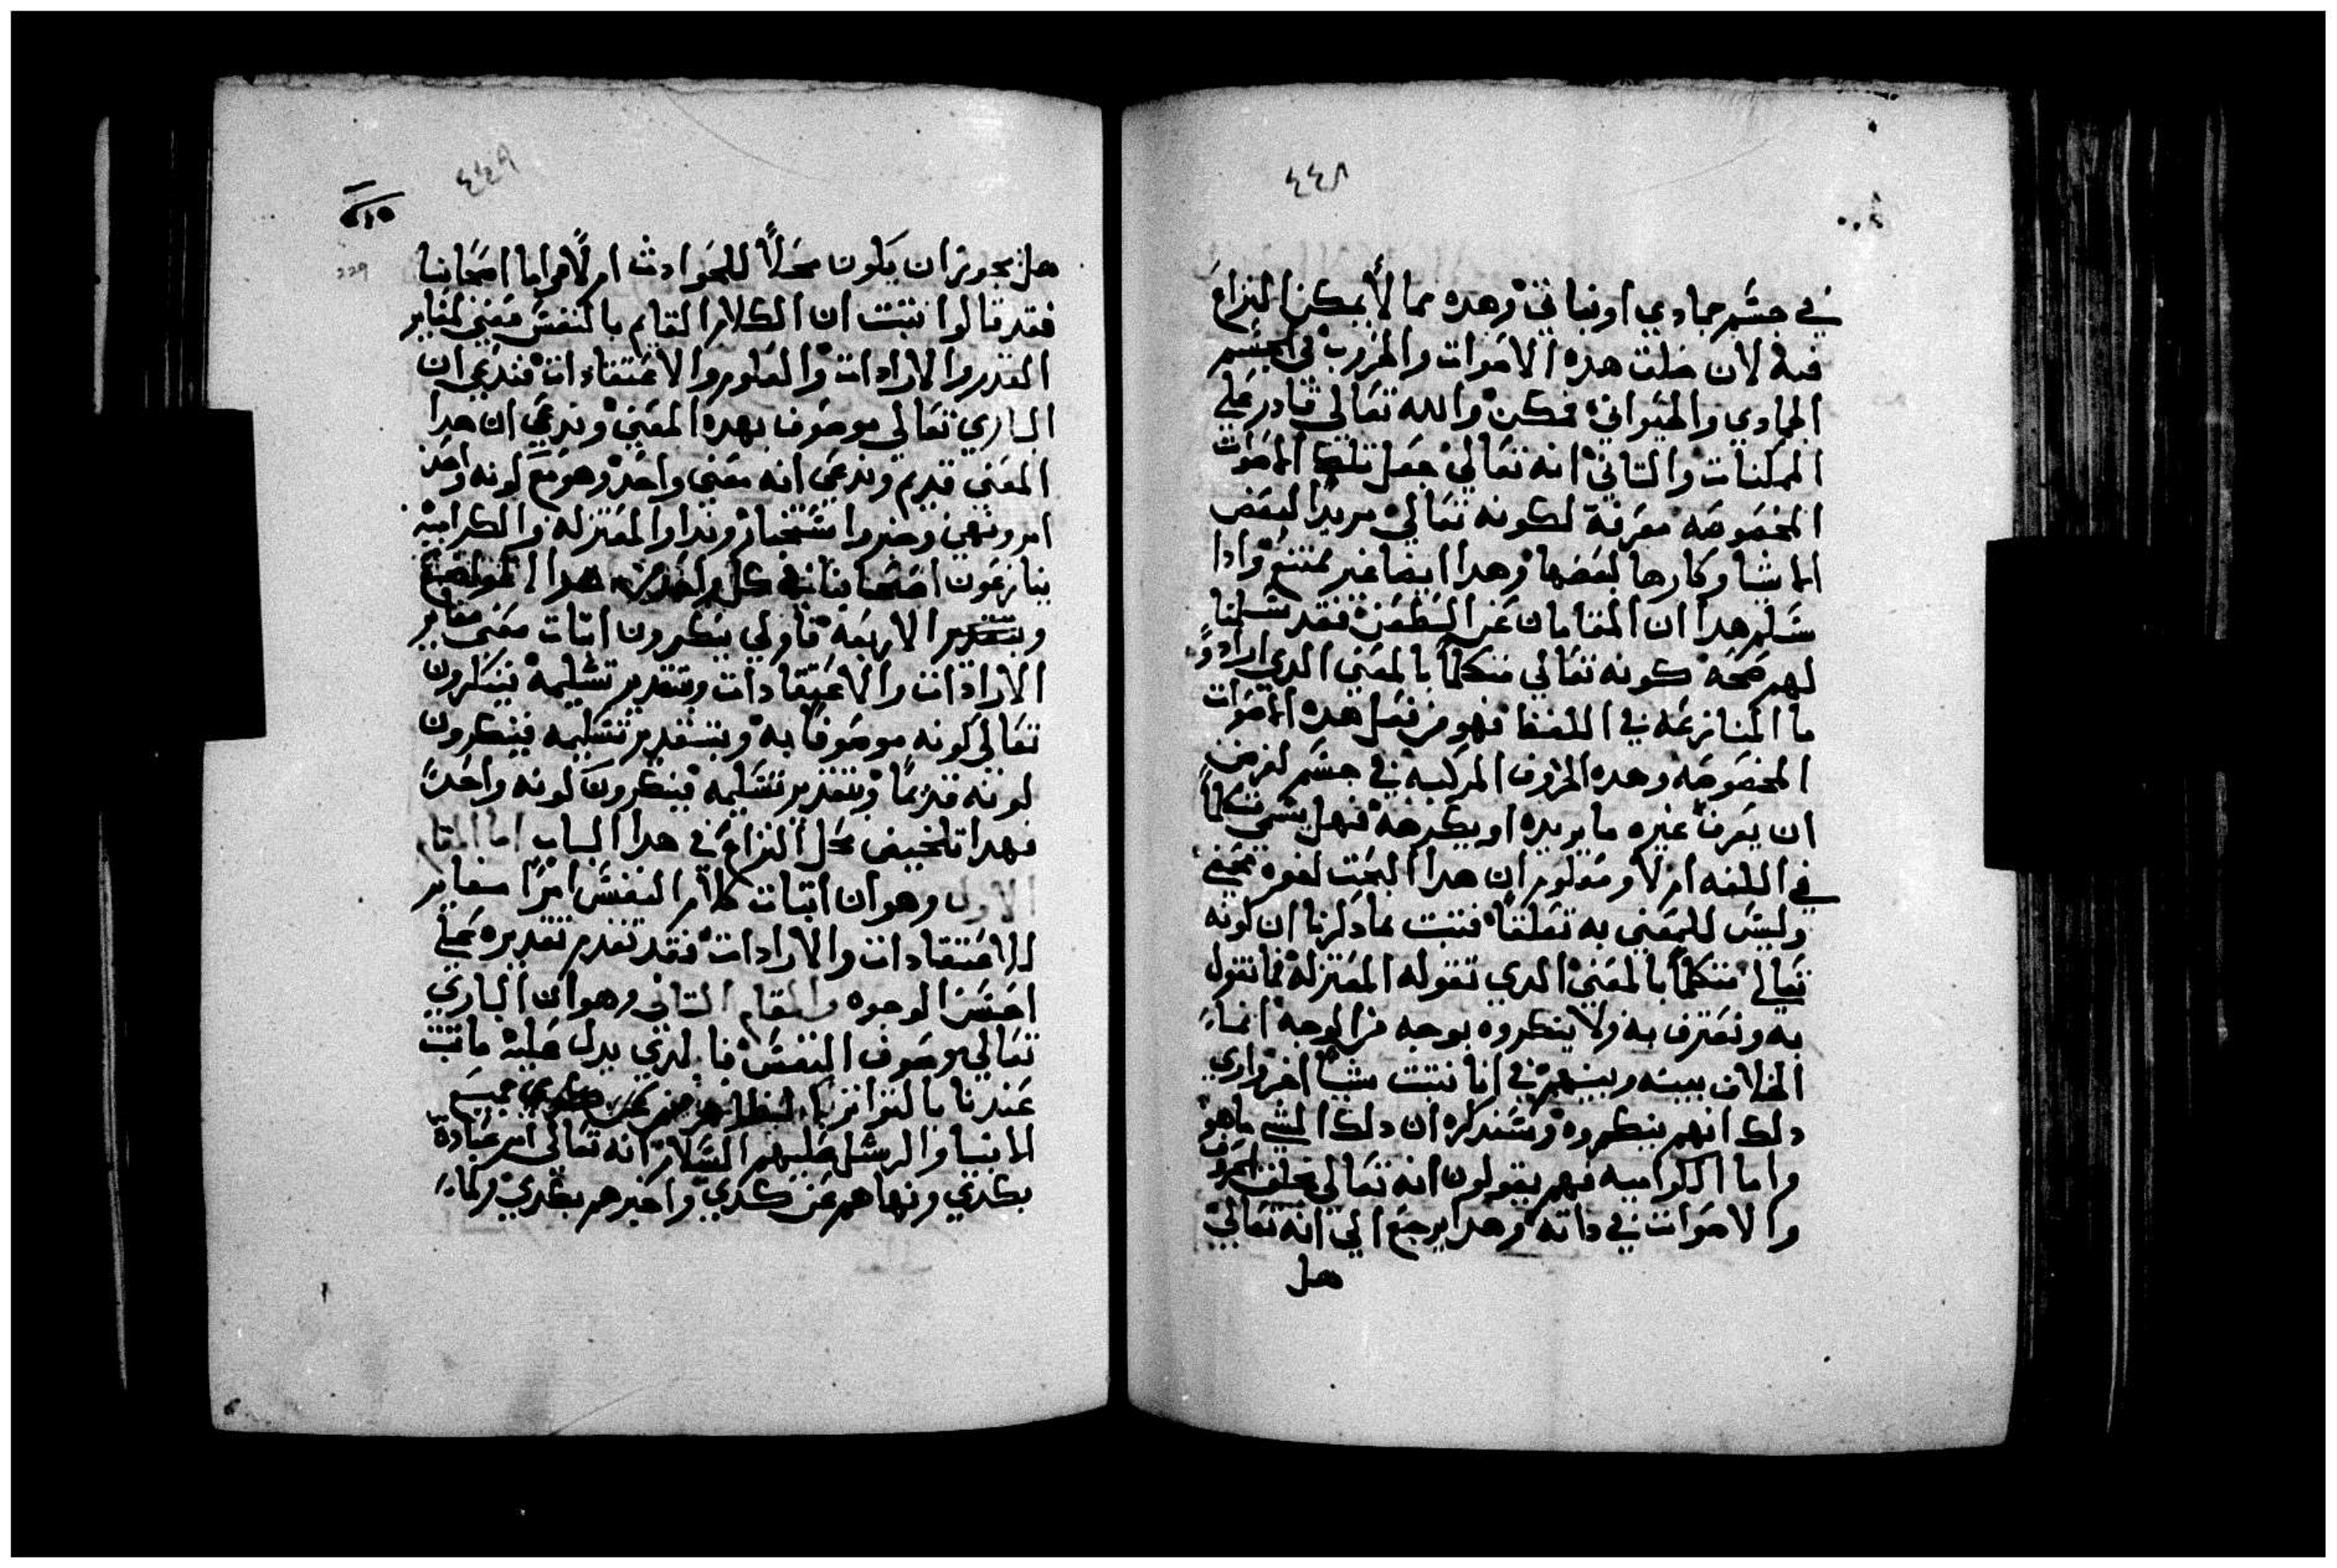 ٤٤٨
في جسم جمادي او نباتي وهده مما لا يمكن النزاع
فيه لان خلق هده الاصوات والحروف في الجسم
الجمادي والحيواني ممكن والله تعالي قادر علي
الممكنات والتاني انه تعالي جعل تلك الاصوات
المخصوصه معرفة لكونه تعالي مريدا لبعض
الاشيا وكارها لبعضها وهدا ايضا غير ممتنع وادا
سلم هدا ان المقامان عن الطعن فقد سلمنا
لهم صحة كونه تعالي متكلماً بالمعني الدي ارادوه
ما المنازعه في اللفظ فهو من فعل هده الاصوات
المخصوصه وهده الحروف المركبه في جسم لغرض
ان يعرف غيره ما يريده او يكرهه فهل يسمي متكلماً
في اللغه ام لا ومعلوم ان هدا البحت لغوه محض
وليس للمعني به تعلقاً فتبت بما دكرنا ان كونه
تعالي متكلماً بالمعني الدي تقوله المعتزله فما نقول
به ونعترف به ولا ينكروه بوجه من الوجة انما
الخلاف بيننه وبينهم في انا نتبت شياً اخر وراي
دلك انهم ينكروه وسندكره ان دلك الشي ما هو
واما الكراميه فهم يقولون انه تعالي يخلق الحروف
والاصوات في داته وهدا يرجع الي انه تعالي
هل
٤٤٩
229
هل يجوز ان يكون محلاً للحوادث ام لا واما اصحابنا
فقد قالوا نتبت ان الكلام القايم بالنفس معني مغاير
القدر والارادات والعلوم والاعتقادات فندعي ان
الباري تعالي موصوف بهده المعني وندعي ان هدا
المعني قديم وندعي انه معني واحد وهو مع كونه واحد
امر ونهي وخبر واستخبار وندا والمعتزله والكراميه
ينازعون اصحابنا في كل واحد من هدا المواضع
وبتقدير الاربعه فاولي ينكرون اتبات معني مغاير
الارادات والاعتقادات وبتقدير تسليمه ينكرون
تعالي كونه موصوفاً به وبتقدير تسليمه فينكرون
كونه قديماً وبتقدير تسليمه فينكرون كونه واحداً
فهدا تلخيص محل النزاع في هدا الباب اما المقام
الاول وهو ان اتبات كلام النفس امراً مغاير
للاعتقادات والارادات فقد تقدم تقديره علي
احسن الوجوه والمقام التاني وهو ان الباري
تعالي موصوف النفس فالدي يدل عليه ما تبت
عندنا بالتواتر الظاهر عن جميع
الانبيا والرسل عليهم السلام انه تعالي امر عباده
بكدي ونهاهم عن كدي واخبرهم بكدي وكما